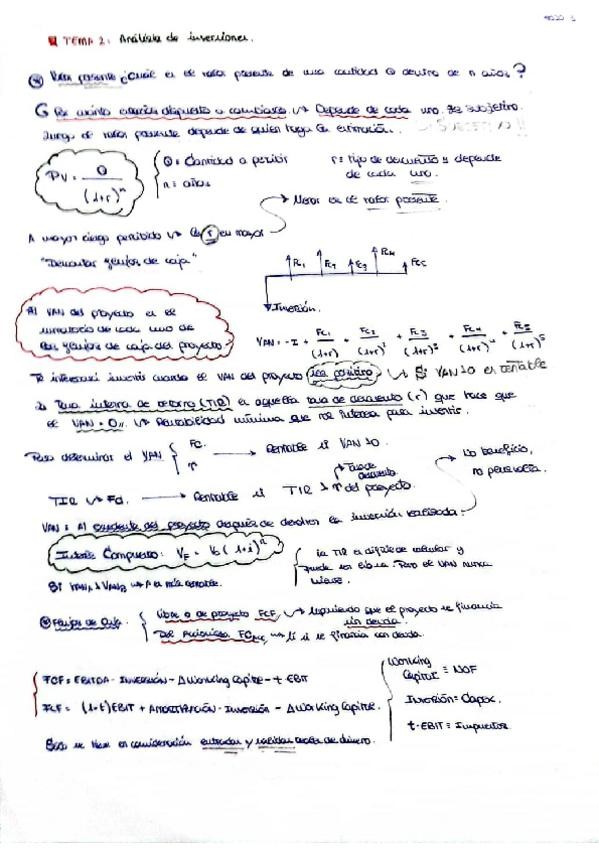 TEMA 2: Análisis de inversiones.
Valor presente ¿Cuál es el valor presente de una cantidad Q dentro de n años?
Por cuánto estarías dispuesto a cambiarlo. Depende de cada uno. Es subjetivo.
Luego el valor presente depende de quien haga la estimación. SUBJETIVO!!
PV = Q / (1+r)^n
Q = Cantidad a percibir
n = años
r = tipo de descuento y depende
de cada uno.
Menor es el valor presente.
A mayor riesgo percibido → la r es mayor
"Descontar flujos de caja"
FC1 FC2 FC3 FC4 FC5
Inversión.
Al VAN del proyecto es el
sumatorio de cada uno de
los flujos de caja del proyecto
VAN = -I + FC1/(1+r) + FC2/(1+r)² + FC3/(1+r)³ + FC4/(1+r)⁴ + FC5/(1+r)⁵
Te interesará invertir cuando el VAN del proyecto sea positivo → Si VAN>0 es rentable
Tasa interna de retorno (TIR) es aquella tasa de descuento (r) que hace que
el VAN = 0,, → Rentabilidad mínima que me interesa para invertir.
Para determinar el VAN { FC. r → Rentable si VAN>0.
Tasa de
descuento
No beneficio,
no pérdida.
TIR → FC. → Rentable si TIR > r del proyecto.
VAN = Al excedente del proyecto después de devolver la inversión realizada.
Interés Compuesto: VF = V0 (1+i)^n
La TIR es difícil de calcular y
puede ser errónea. Pero el VAN nunca
Si VANA > VANB → A es más rentable.
Flujos de Caja
Libre o de proyecto FCF, → Suponiendo que el proyecto se financia
sin deuda.
Del Accionista FCAC → Si se financia con deuda.
FCF = EBITDA - INVERSIÓN - Δ Working Capital - t·EBIT
FCF = (1-t)EBIT + AMORTIZACIÓN - Inversión - Δ Working Capital.
Working
Capital = NOF
Inversión = Capex.
t·EBIT = Impuestos
Solo se tiene en consideración entradas y salidas reales de dinero.